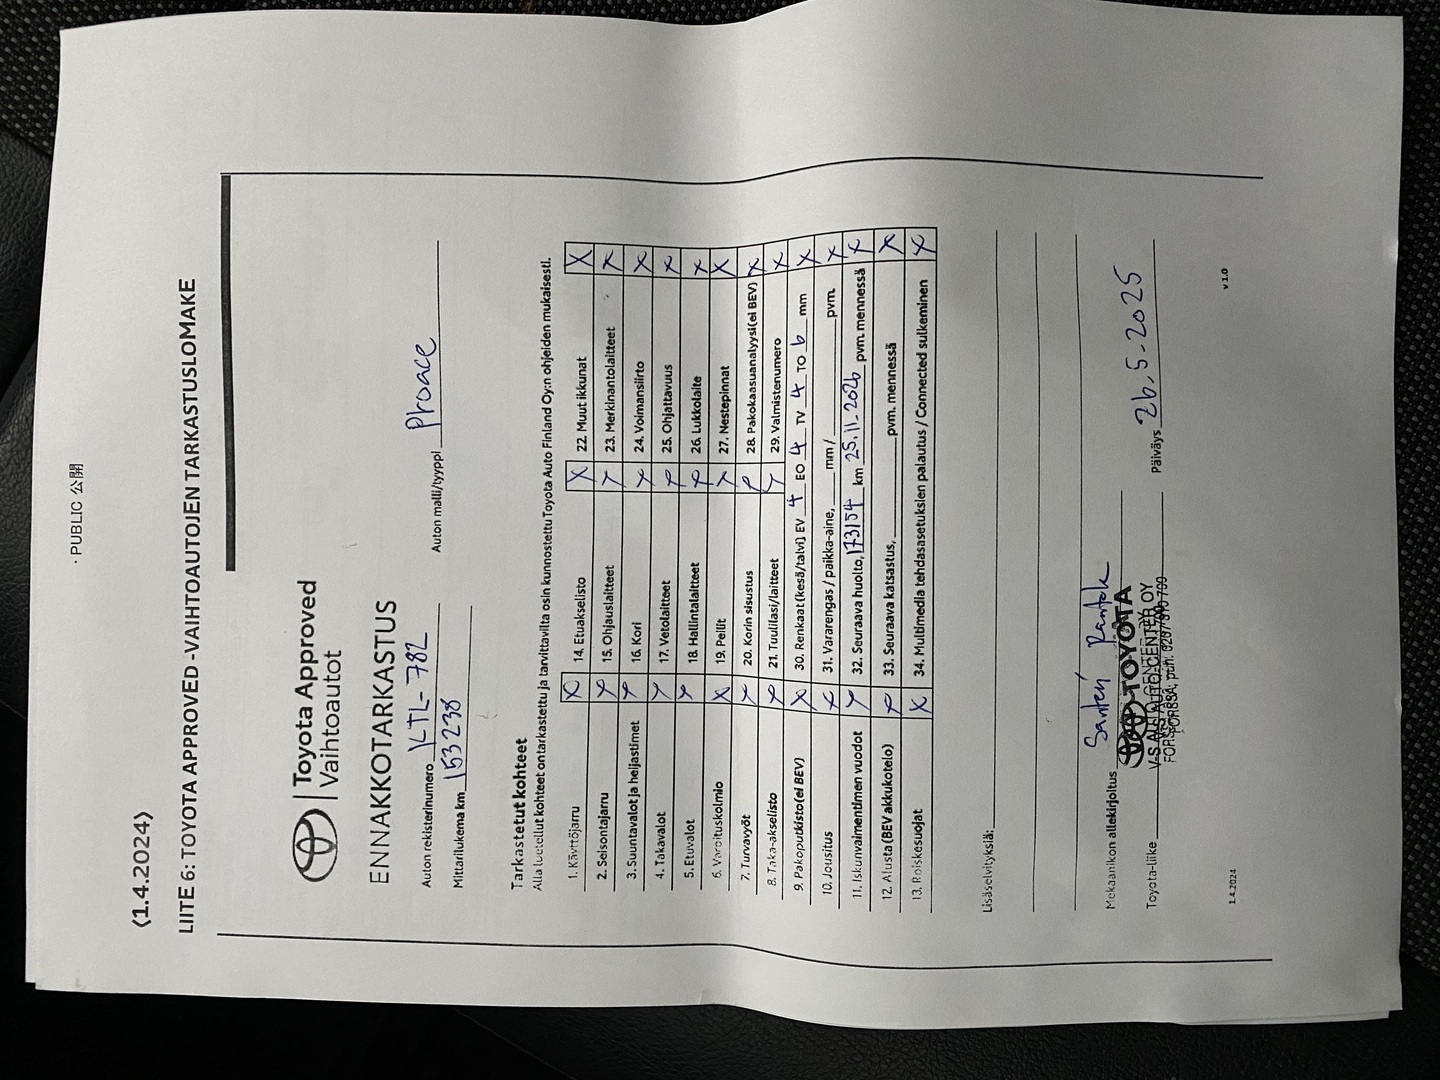 · PUBLIC 公開
(1.4.2024)
LIITE 6: TOYOTA APPROVED -VAIHTOAUTOJEN TARKASTUSLOMAKE
Toyota Approved
Vaihtoautot
ENNAKKOTARKASTUS
Auton rekisterinumero KTL-782 Auton malli/tyyppi Proace
Mittarilukema km 153238
Tarkastetut kohteet
Alla luetellut kohteet on tarkastettu ja tarvittavilta osin kunnostettu Toyota Auto Finland Oy:n ohjeiden mukaisesti.
1. Käyttöjarru X 14. Etuakselisto X 22. Muut ikkunat X
2. Seisontajarru X 15. Ohjauslaitteet X 23. Merkinantolaitteet X
3. Suuntavalot ja heijastimet X 16. Kori X 24. Voimansiirto X
4. Takavalot X 17. Vetolaitteet X 25. Ohjattavuus X
5. Etuvalot X 18. Hallintalaitteet X 26. Lukkolaite X
6. Varoituskolmio X 19. Peilit X 27. Nestepinnat X
7. Turvavyöt X 20. Korin sisustus X 28. Pakokaasuanalyysi(ei BEV) X
8. Taka-akselisto X 21. Tuulilasi/laitteet X 29. Valmistenumero X
9. Pakoputkisto(ei BEV) X 30. Renkaat (kesä/talvi) EV 4 EO 4 TV 4 TO 6 mm X
10. Jousitus X 31. Vararengas / paikka-aine, mm / pvm. X
11. Iskunvaimentimen vuodot X 32. Seuraava huolto, 173154 km 25.11.2026 pvm. mennessä X
12. Alusta (BEV akkukotelo) X 33. Seuraava katsastus, pvm. mennessä X
13. Roiskesuojat X 34. Multimedia tehdasasetuksien palautus / Connected sulkeminen X
Lisäselvityksiä:
Mekaanikon allekirjoitus Santeri
TOYOTA
Toyota-liike V-S AUTO-CENTER OY Päiväys 26.5-2025
FORSSA, puh.
1.4.2024 v 1.0